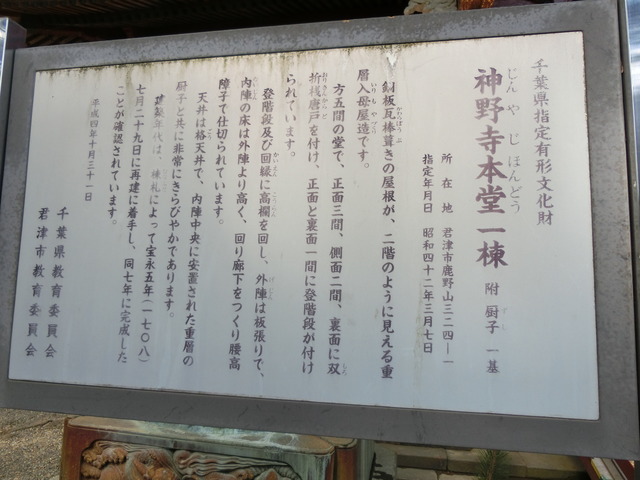 千葉県指定有形文化財
神野寺本堂一棟 附 厨子 一基
じんやじほんどう
所在地 君津市鹿野山三二四―一
指定年月日 昭和四十二年三月七日
銅板瓦棒葺きの屋根が、二階のように見える重
層入母屋造です。
方五間の堂で、正面三間、側面二間、裏面に双
折桟唐戸を付け、正面と裏面一間に登階段が付け
られています。
登階段及び回縁に高欄を回し、外陣は板張りで、
内陣の床は外陣より高く、回り廊下をつくり腰高
障子で仕切られています。
天井は格天井で、内陣中央に安置された重層の
厨子と共に非常にきらびやかであります。
建築年代は、棟札によって宝永五年(一七〇八)
七月二十九日に再建に着手し、同七年に完成した
ことが確認されています。
平成四年十月三十一日
千葉県教育委員会
君津市教育委員会